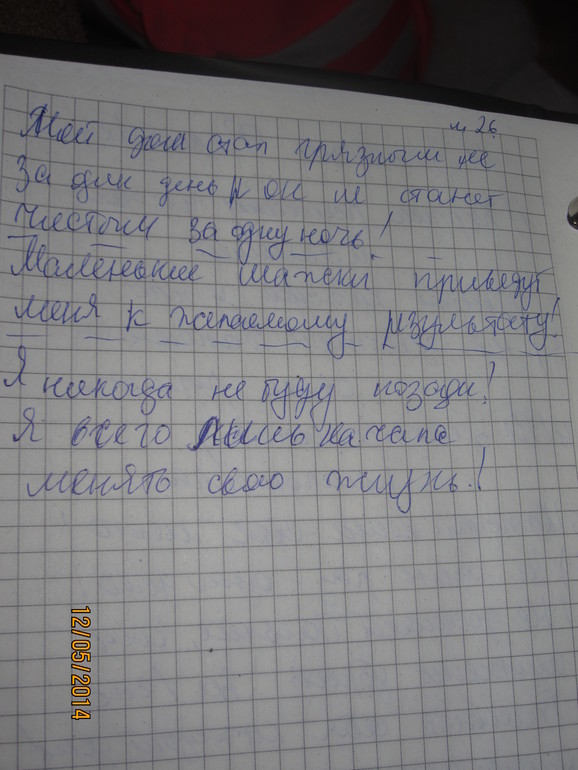 м 26
Мой дом стал грязным не
за один день и он не станет
чистым за одну ночь!
Маленькие шажки приведут
меня к желаемому результату!
Я никогда не буду позади!
Я всего лишь начала
менять свою жизнь!
12/05/2014